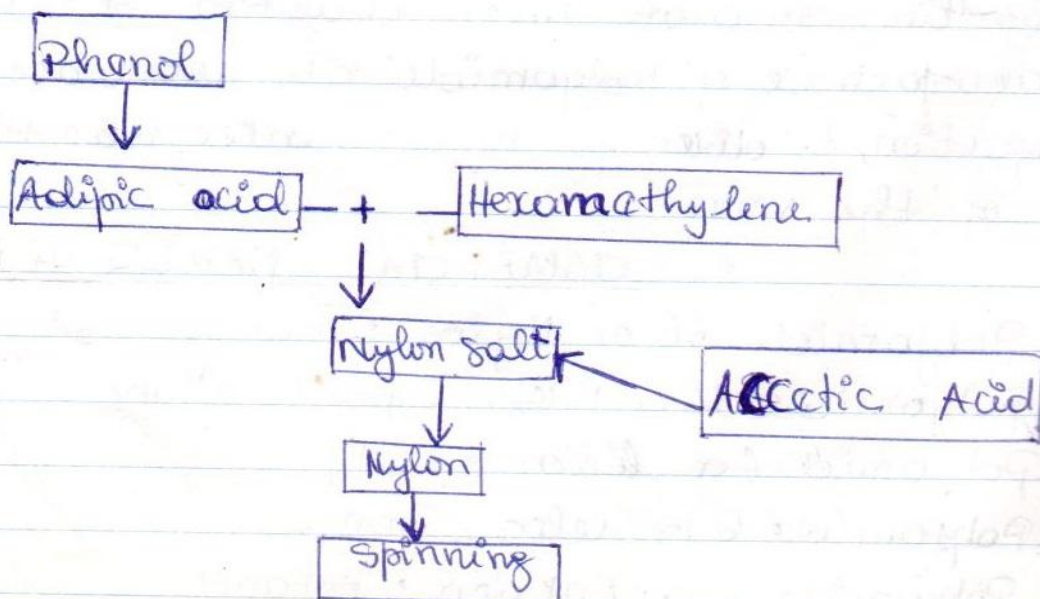 Phenol
Adipic acid + Hexamethylene
Nylon salt
Acetic Acid
Nylon
Spinning